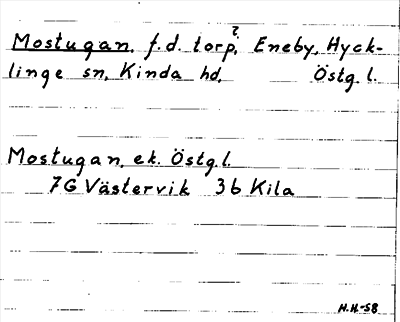 Mostugan, f.d. torp?, Eneby, Hyck-
linge sn, Kinda hd, Östg.l.
Mostugan, ek. Östg.l.
7G Västervik 3b Kila
H.H-58